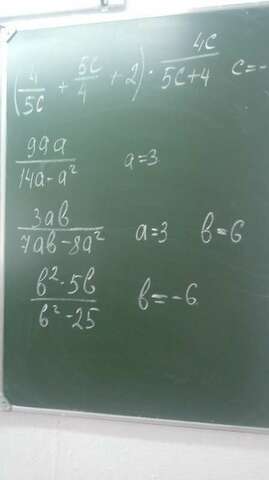 (4/5c + 5c/4 + 2) · 4c/5c+4 c=-
99a/14a-a² a=3
3ab/7ab-8a² a=3 b=6
b²·5b/b²-25 b=-6